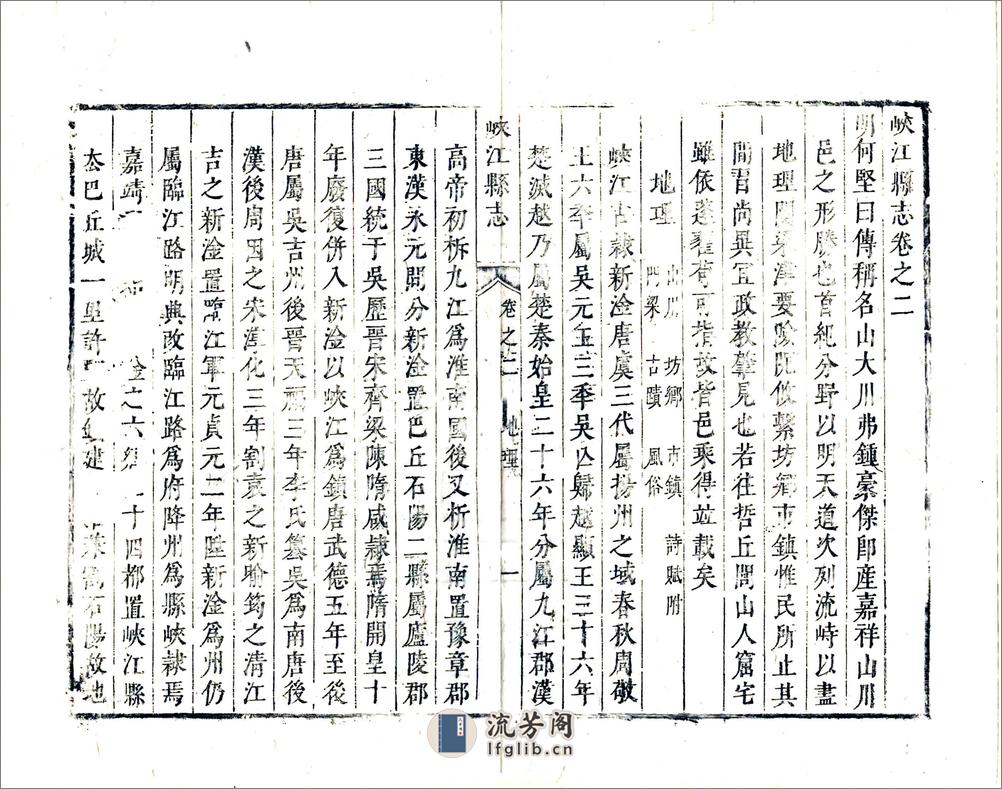 峽江縣志卷之二
明何堅曰傳稱名山大川弗鍾豪傑郎産嘉祥山川
邑之形勝也首紀分野以明天道次列流峙以盡
地理關梁津要險阨攸繫坊鄉市鎮惟民所止其
間習尚異宜政教肇見也若往哲丘閭山人窟宅
雖依蓬藋苟可指故皆邑乘得竝載矣
地理 山川 坊鄉 市鎮 詩賦附
門梁 古蹟 風俗
峽江古隸新淦唐虞三代屬揚州之域春秋周敬
王六年屬吳元王三年吳亾歸越顯王三十六年
楚滅越乃屬楚秦始皇二十六年分屬九江郡漢
峽江縣志 卷之二 地理 一
高帝初柝九江爲淮南國後又析淮南置豫章郡
東漢永元間分新淦置巴丘石陽二縣屬廬陵郡
三國統于吳歷晉宋齊梁陳隋咸隷焉隋開皇十
年廢復併入新淦以峽江爲鎮唐武德五年至後
唐屬吳吉州後晉天福三年李氏簒吳爲南唐後
漢後周因之宋淳化三年割袁之新喻筠之清江
吉之新淦置臨江軍元貞元二年陞新淦爲州仍
屬臨江路明興改臨江路爲府降州爲縣峽隷焉
嘉靖 淦之六鄉 十四都置峽江縣
去巴丘城一里許 故 建 石陽故地
流芳阁
lfglib.cn